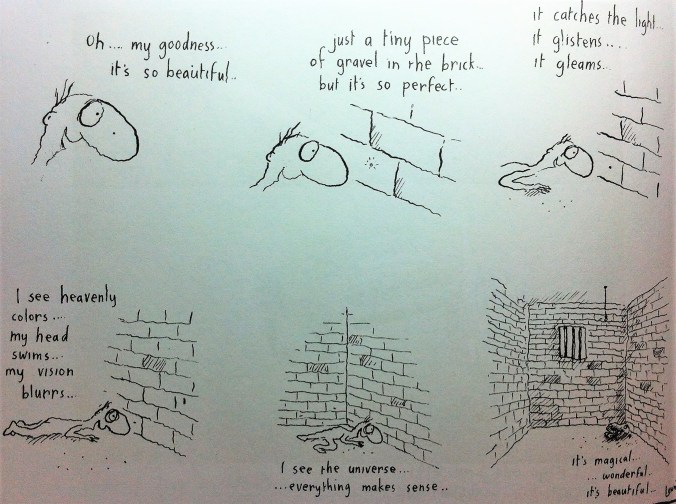 Oh.... my goodness...
it's so beautiful..
just a tiny piece
of gravel in the brick...
but it's so perfect..
it catches the light...
it glistens....
it gleams...
I see heavenly
colors....
my head
swims...
my vision
blurrs...
I see the universe...
...everything makes sense..
it's magical...
... wonderful..
it's beautiful..